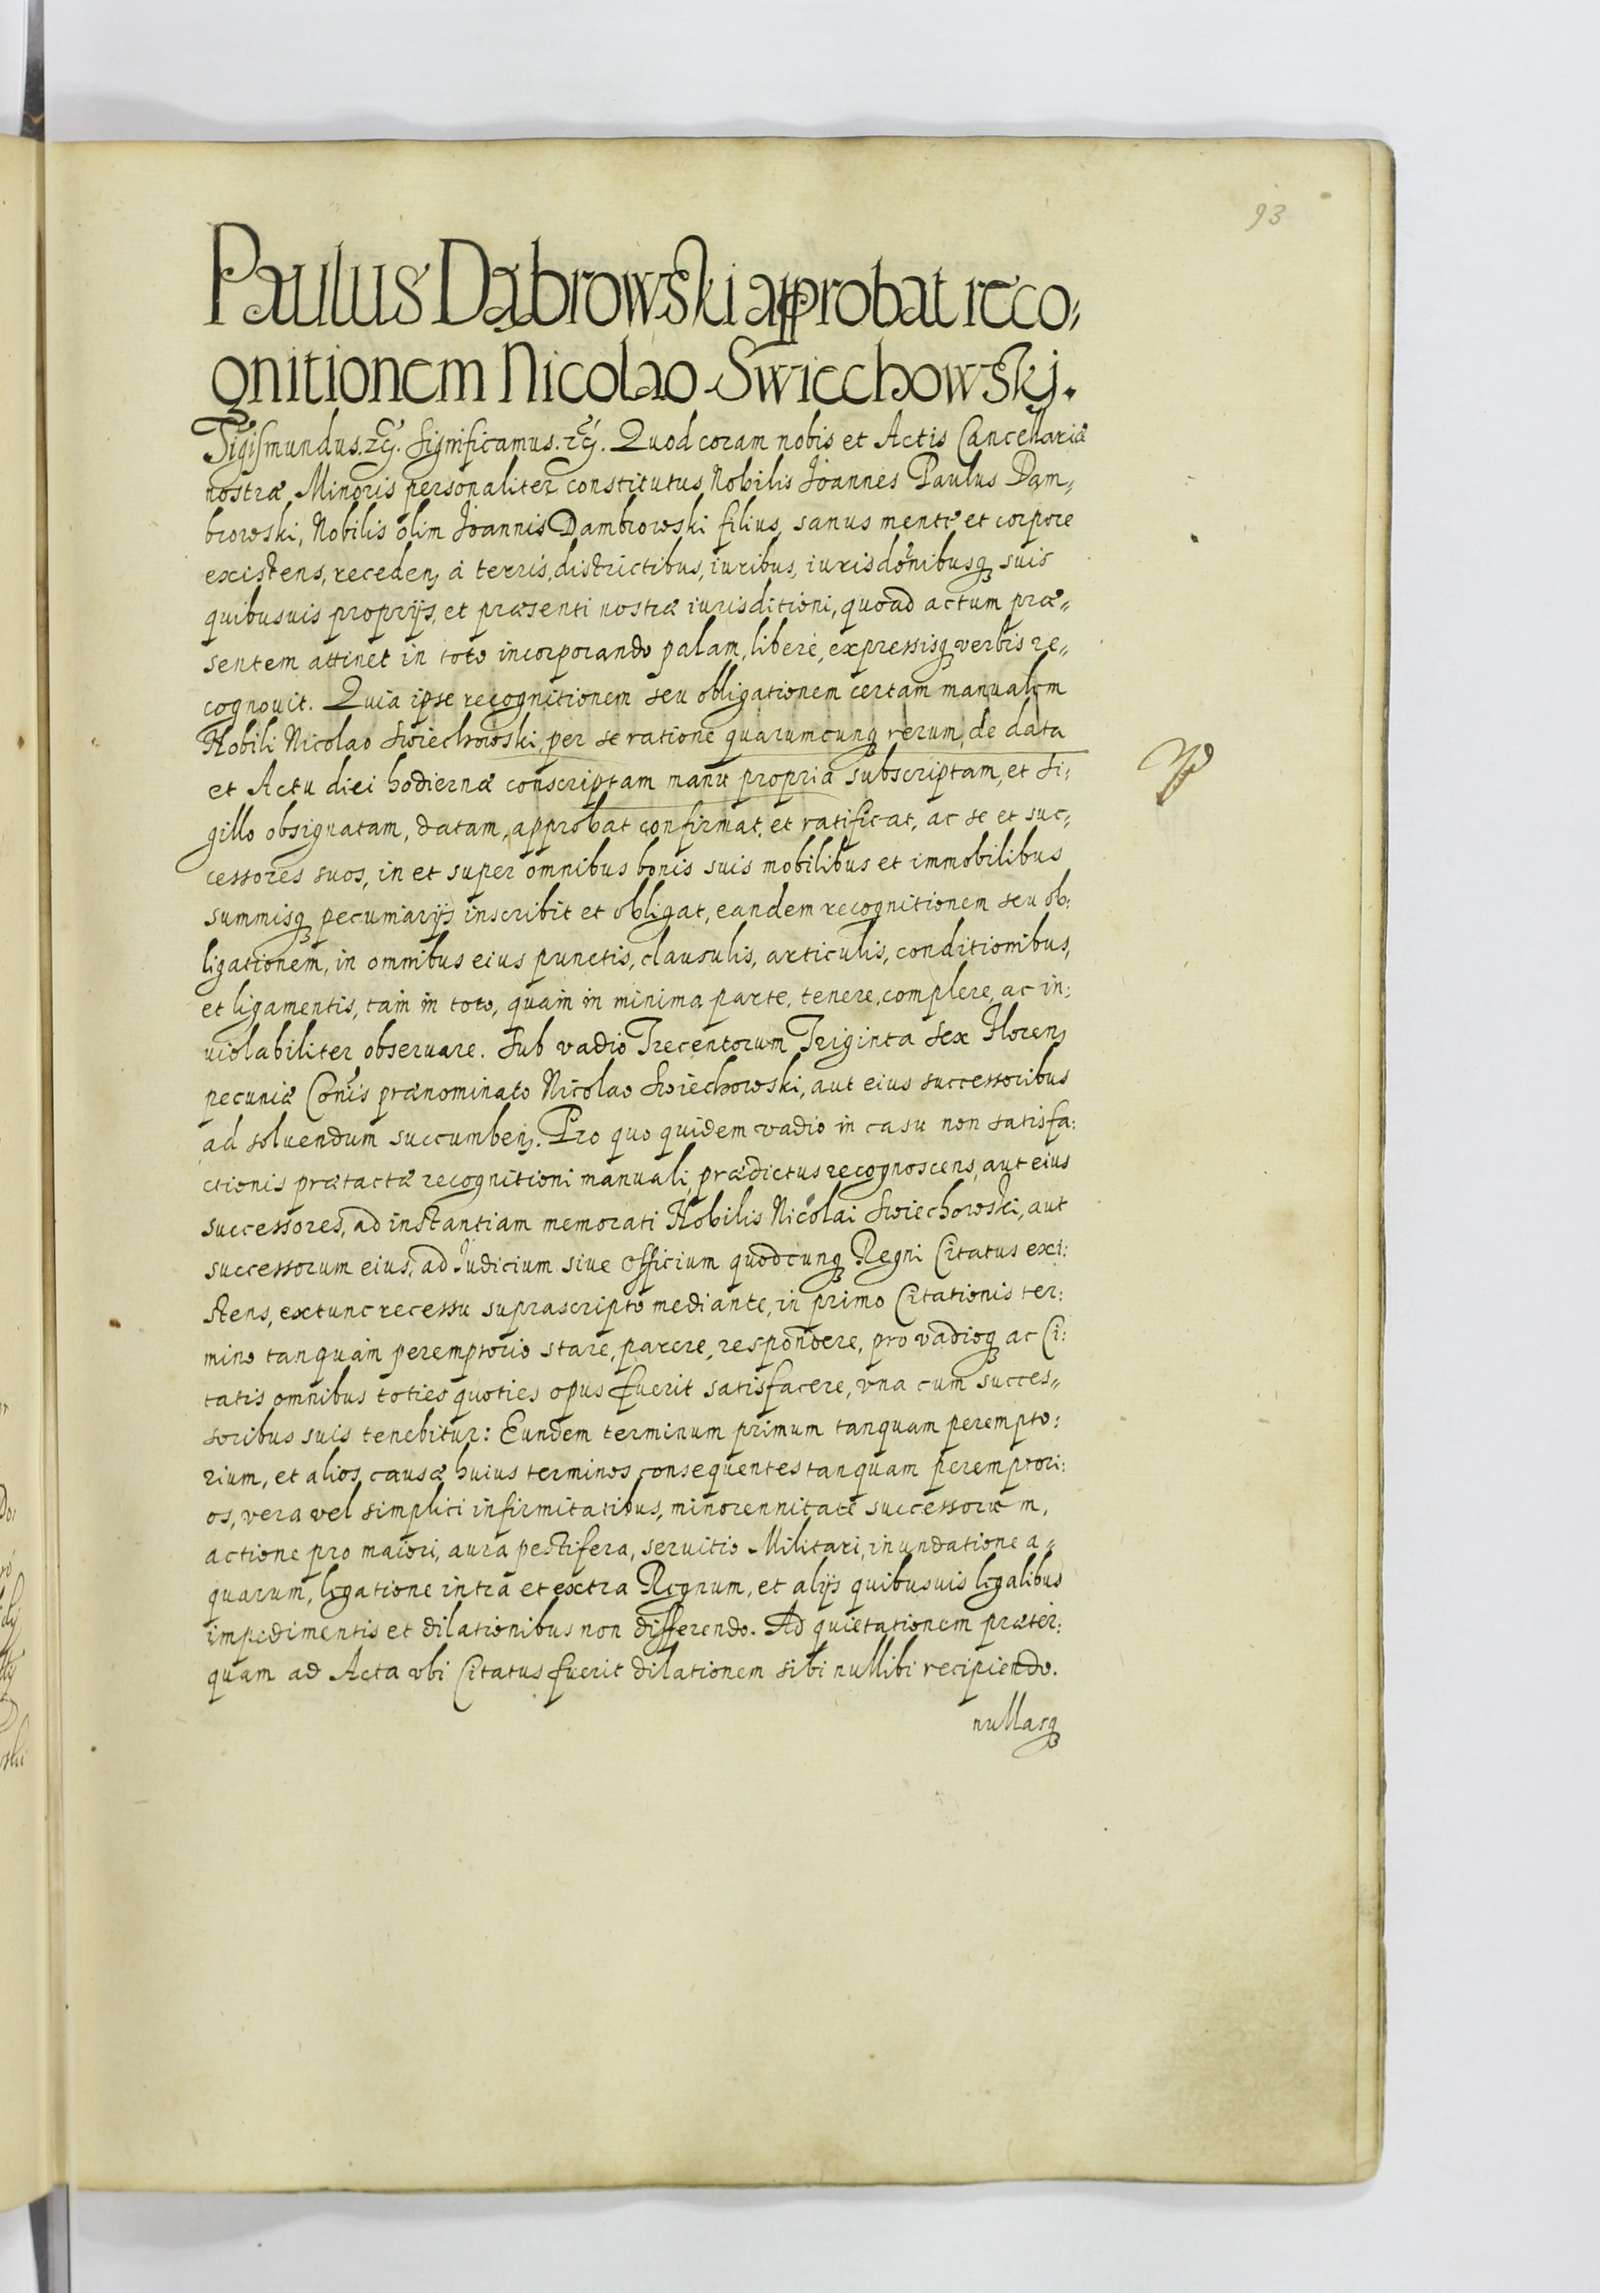 93
Paulus Dąbrowski approbat reco,
gnitionem Nicolao Swiechowskj.
Sigismundus. etc. Significamus. etc. Quod coram nobis et Actis Cancellariæ
nostræ Minoris personaliter constitutus Nobilis Joannes Paulus Dam„
browski, Nobilis olim Joannis Dambrowski filius, sanus mente et corpore
existens, recedens à terris, districtibus, iuribus, iurisdõnibusq suis
quibusuis proprijs, et præsenti nostræ iurisditioni, quoad actum præ„
sentem attinet in toto incorporando palam, libere, expressisq verbis re„
cognouit. Quia ipse recognitionem seu obligationem certam manualem
Nobili Nicolao Swiechowski, per se ratione quarumcunq rerum, de data
et Actu diei hodiernæ conscriptam manu propria subscriptam, et si:
gillo obsignatam, datam, approbat confirmat, et ratificat, ac se et suc:
cessores suos, in et super omnibus bonis suis mobilibus et immobilibus
summisq pecuniarijs inscribit et obligat, eandem recognitionem seu ob:
ligationem, in omnibus eius punctis, clausulis, articulis, conditionibus,
et ligamentis, tam in toto, quam in minima parte, tenere, complere, ac in:
uiolabiliter obseruare. Sub vadio Trecentorum Triginta sex Florens
pecuniæ Cõnis prænominato Nicolao Swiechowski, aut eius successoribus
ad soluendum succumbens. Pro quo quidem vadio in casu non satisfa:
ctionis prætactæ recognitioni manuali, prædictus recognoscens, aut eius
successores, ad instantiam memorati Nobilis Nicolai Swiechowski, aut
successorum eius, ad Judicium siue Officium quodcunq Regni Citatus exi:
stens, extunc recessu suprascripto mediante, in primo Citationis ter:
mino tanquam peremptorio stare, parere, respondere, pro vadioq ac Ci:
tatis omnibus toties quoties opus fuerit satisfacere, vna cum succes„
soribus suis tenebitur: Eundem terminum primum tanquam perempto:
rium, et alios causæ huius terminos consequentes tanquam peremptori:
os, vera vel simplici infirmitatibus, minorennitate successorum,
actione pro maiori, aura pestifera, seruitio Militari, inundatione a„
quarum, legatione intra et extra Regnum, et alijs quibusuis legalibus
impedimentis et dilationibus non differendo. Ad quietationem præter:
quam ad Acta vbi Citatus fuerit dilationem sibi nullibi recipiendo.
nullasq